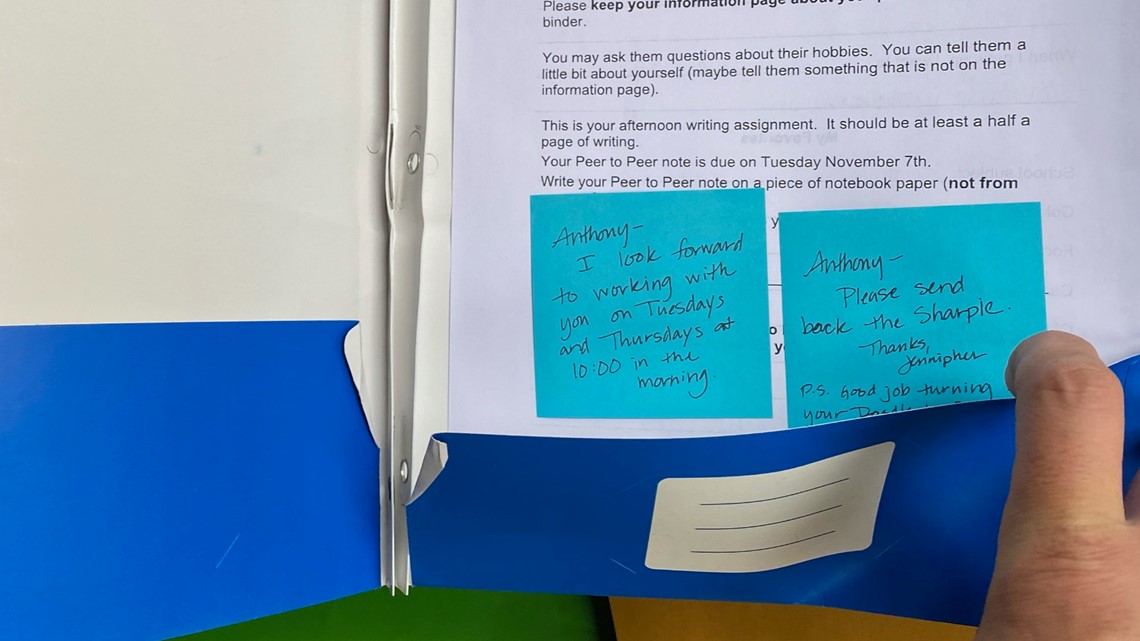 Please keep your information page about
binder.
You may ask them questions about their hobbies. You can tell them a
little bit about yourself (maybe tell them something that is not on the
information page).
This is your afternoon writing assignment. It should be at least a half a
page of writing.
Your Peer to Peer note is due on Tuesday November 7th.
Write your Peer to Peer note on a piece of notebook paper (not from
Anthony-
I look forward
to working with
you on Tuesdays
and Thursdays at
10:00 in the
morning.
Anthony-
Please send
back the Sharpie.
Thanks,
Jennipher
P.S. Good job turning
your